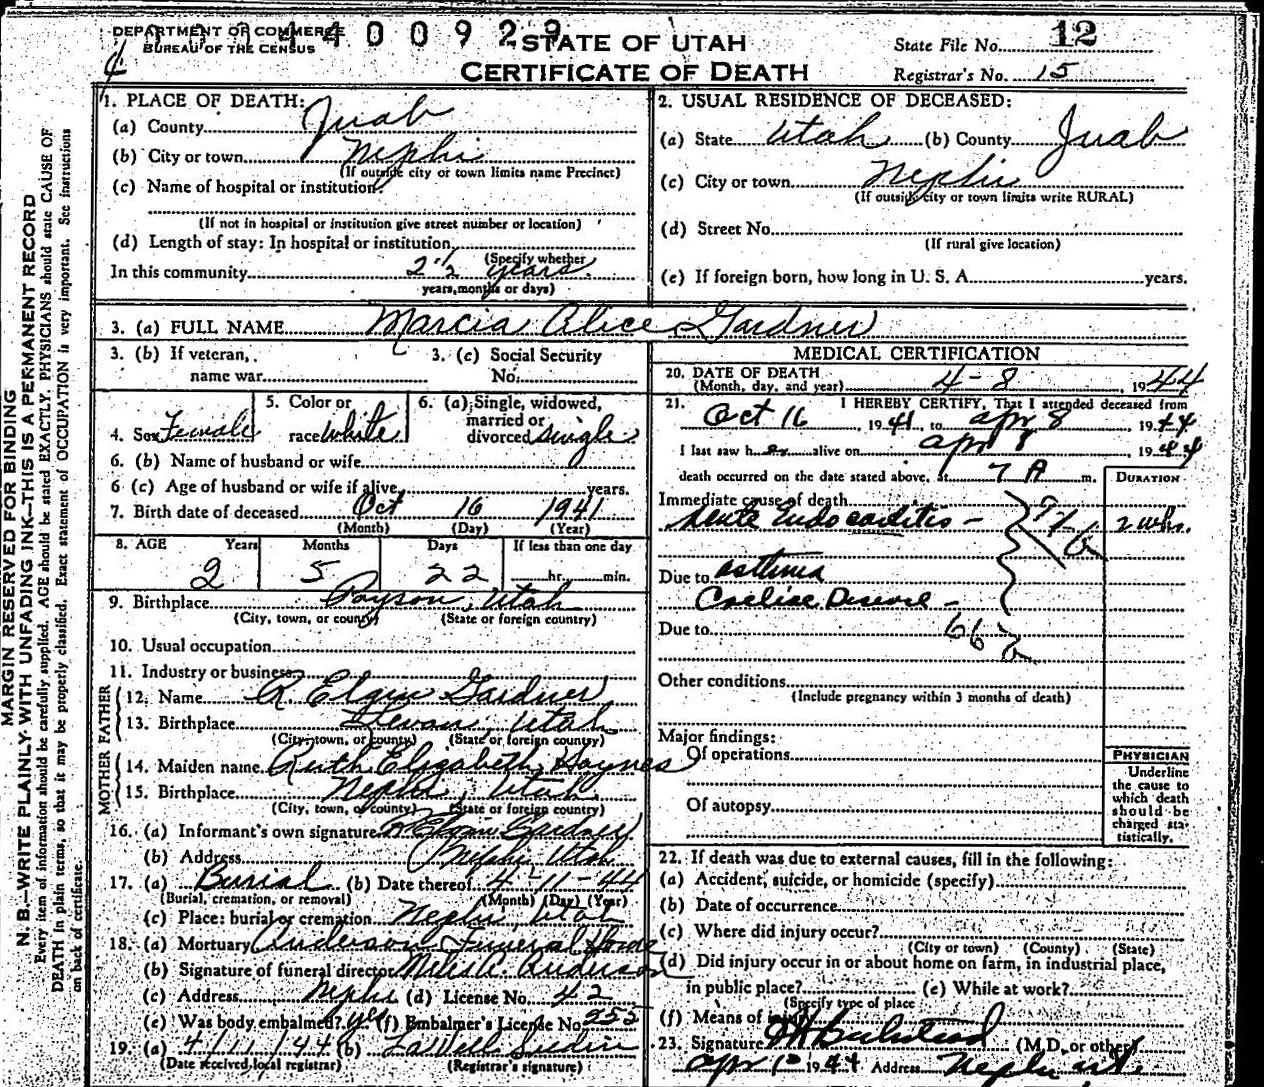 DEPARTMENT OF COMMERCE
BUREAU OF THE CENSUS
4 4 0 0 9 2 9
STATE OF UTAH
CERTIFICATE OF DEATH
State File No. 12
Registrar's No. 15
MARGIN RESERVED FOR BINDING
N. B.—WRITE PLAINLY WITH UNFADING INK—THIS IS A PERMANENT RECORD
Every item of information should be carefully supplied. AGE should be stated EXACTLY. PHYSICIANS should state CAUSE OF
DEATH in plain terms, so that it may be properly classified. Exact statement of OCCUPATION is very important. See instructions
on back of certificate.
1. PLACE OF DEATH:
(a) County Juab
(b) City or town Nephi
(If outside city or town limits name Precinct)
(c) Name of hospital or institution
(If not in hospital or institution give street number or location)
(d) Length of stay: In hospital or institution
(Specify whether
In this community 2 1/2 years
years, months or days)
2. USUAL RESIDENCE OF DECEASED:
(a) State Utah (b) County Juab
(c) City or town Nephi
(If outside city or town limits write RURAL)
(d) Street No.
(If rural give location)
(e) If foreign born, how long in U. S. A. years.
3. (a) FULL NAME Marcia Alice Gardner
3. (b) If veteran,
name war
3. (c) Social Security
No.
4. Sex Female
5. Color or
race White
6. (a) Single, widowed,
married or
divorced single
6. (b) Name of husband or wife
6 (c) Age of husband or wife if alive years.
7. Birth date of deceased Oct 16 1941
(Month) (Day) (Year)
8. AGE Years Months Days If less than one day
2 5 22 hr. min.
9. Birthplace Payson, Utah
(City, town, or county) (State or foreign country)
10. Usual occupation
11. Industry or business
FATHER
12. Name R. Elgin Gardner
13. Birthplace Levan, Utah
(City, town, or county) (State or foreign country)
MOTHER
14. Maiden name Ruth Elizabeth Haynes
15. Birthplace Nephi, Utah
(City, town, of county) (State or foreign country)
16. (a) Informant's own signature R Elgin Gardner
(b) Address Nephi Utah
17. (a) Burial (b) Date thereof 4-11-44
(Burial, cremation, or removal) (Month) (Day) (Year)
(c) Place: burial or cremation Nephi, Utah
18. (a) Mortuary Anderson Funeral Home
(b) Signature of funeral director Miles A. Anderson
(c) Address Nephi (d) License No. 42
(e) Was body embalmed? yes (f) Embalmer's License No. 252
19. (a) 4/11/44 (b)
(Date received local registrar) (Registrar's signature)
MEDICAL CERTIFICATION
20. DATE OF DEATH
(Month, day, and year) 4-8, 1944
21. I HEREBY CERTIFY, That I attended deceased from
Oct 16, 1941, to Apr 8, 1944
I last saw her alive on Apr 8, 1944
death occurred on the date stated above, at 7 A m.
DURATION
Immediate cause of death
Acute Endocarditis - 2 wks.
Due to asthma
Coeliac Disease -
Due to
Other conditions
(Include pregnancy within 3 months of death)
Major findings:
Of operations
Of autopsy
PHYSICIAN
Underline
the cause to
which death
should be
charged sta-
tistically.
22. If death was due to external causes, fill in the following:
(a) Accident, suicide, or homicide (specify)
(b) Date of occurrence
(c) Where did injury occur?
(City or town) (County) (State)
(d) Did injury occur in or about home on farm, in industrial place,
in public place? (e) While at work?
(Specify type of place
(f) Means of injury
23. Signature (M.D. or other)
Apr 1944 Address Nephi